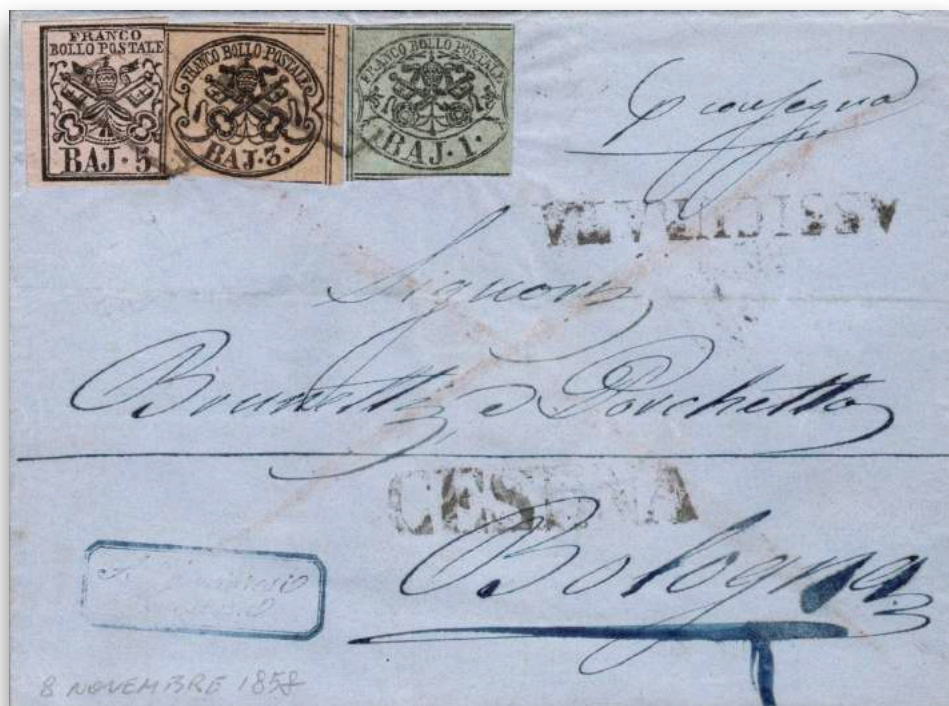 FRANCO
BOLLO POSTALE
BAJ·5
FRANCO BOLLO POSTALE
BAJ·3·
FRANCO BOLLO POSTALE
BAJ·1·
p consegna
ASSICURATA
Signori
Brunetti e Porchetto
CESENA
Bologna
8 NOVEMBRE 1858